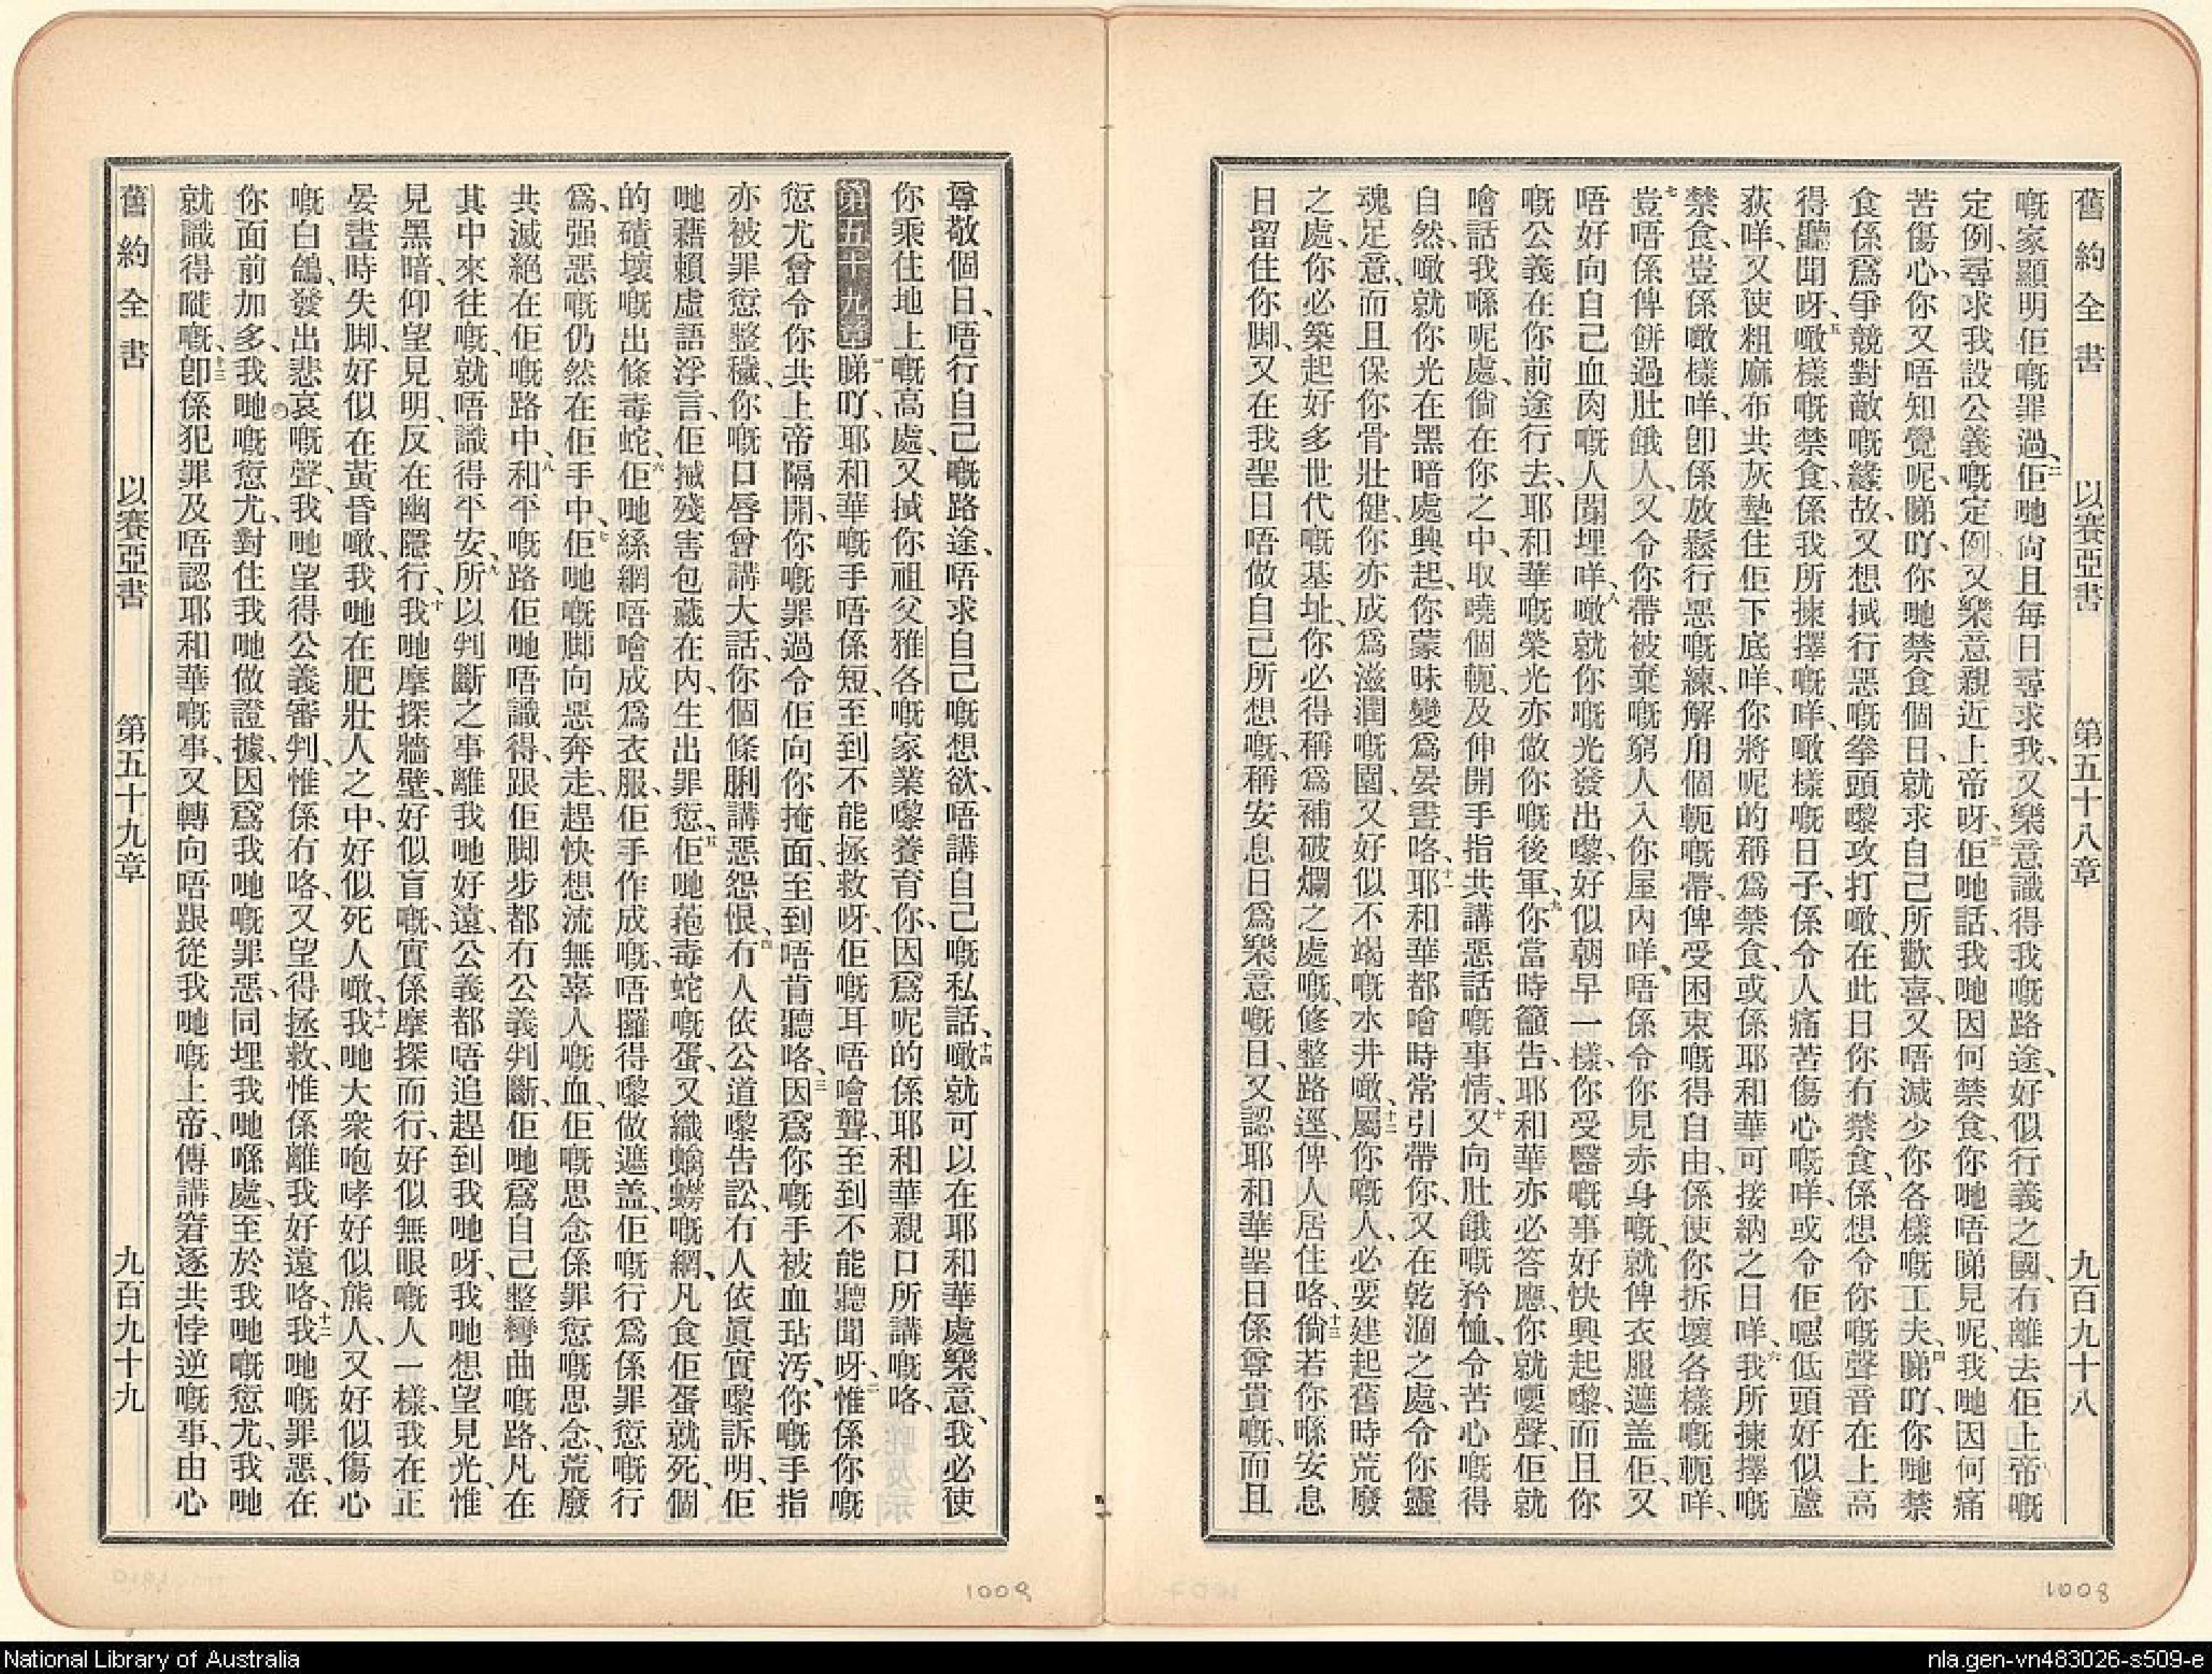 舊約全書 以賽亞書 第五十八章 九百九十八
嘅家顯明佢嘅罪過、二佢哋尙且每日尋求我、又樂意識得我嘅路途、好似行義之國、冇離去佢上帝嘅
定例、尋求我設公義嘅定例、又樂意親近上帝呀、三佢哋話、我哋因何禁食、你哋唔睇見呢、我哋因何痛
苦傷心、你又唔知覺呢、睇吖、你哋禁食個日、就求自己所歡喜、又唔減少你各樣嘅工夫、四睇吖、你哋禁
食係爲爭競對敵嘅緣故、又想㨃行惡嘅拳頭嚟攻打噉、在此日你冇禁食、係想令你嘅聲音在上高
得聽聞呀、五噉樣嘅禁食、係我所揀擇嘅咩、噉樣嘅日子、係令人痛苦傷心嘅咩、或令佢嗯低頭好似蘆
荻咩、又使粗麻布共灰墊住佢下底咩、你將呢的稱爲禁食、或係耶和華可接納之日咩、六我所揀擇嘅
禁食、豈係噉樣咩、卽係放鬆行惡嘅練、解用個軛嘅帶、俾受困束嘅得自由、係使你拆壞各樣嘅軛咩、
七豈唔係俾餅過肚餓人、又令你帶被棄嘅窮人入你屋内咩、唔係令你見赤身嘅、就俾衣服遮盖佢、又
唔好向自己血肉嘅人閪埋咩、八噉就你嘅光發出嚟、好似朝早一樣、你受醫嘅事好快興起嚟、而且你
嘅公義在你前途行去、耶和華嘅榮光亦做你嘅後軍、九你當時籲告、耶和華亦必答應、你就嘤聲、佢就
噲話我喺呢處、倘在你之中、取曉個軛、及伸開手指共講惡話嘅事情、十又向肚餓嘅矜恤、令苦心嘅得
自然、噉就你光在黑暗處興起、你蒙昧變爲晏晝咯、十一耶和華都噲時常引帶你、又在乾涸之處、令你靈
魂足意、而且保你骨壯健、你亦成爲滋潤嘅園、又好似不竭嘅水井噉、十二屬你嘅人、必要建起舊時荒廢
之處、你必築起好多世代嘅基址、你必得稱爲補破爛之處嘅、修整路逕、俾人居住咯、十三倘若你喺安息
日留住你脚、又在我聖日唔做自己所想嘅、稱安息日爲樂意嘅日、又認耶和華聖日係尊貴嘅、而且
尊敬個日、唔行自己嘅路途、唔求自己嘅想欲、唔講自己嘅私話、十四噉就可以在耶和華處樂意、我必使
你乘住地上嘅高處、又㨃你祖父雅各嘅家業嚟養育你、因爲呢的係耶和華親口所講嘅咯、
第五十九章 一睇吖、耶和華嘅手唔係短、至到不能拯救呀、佢嘅耳唔噲聾、至到不能聽聞呀、二惟係你嘅
愆尤曾令你共上帝隔開、你嘅罪過令佢向你掩面、至到唔肯聽咯、三因爲你嘅手被血玷汚、你嘅手指
亦被罪愆整穢、你嘅口唇曾講大話、你個條脷講惡怨恨、四冇人依公道嚟告訟、冇人依眞實嚟訴明、佢
哋藉賴虛語浮言、佢㨃殘害包藏在内、生出罪愆、五佢哋菢毒蛇嘅蛋、又織蟧蟧嘅網、凡食佢蛋就死、個
的磧壞嘅出條毒蛇、六佢哋絲網唔噲成爲衣服、佢手作成嘅、唔攞得嚟做遮盖、佢嘅行爲係罪愆嘅行
爲、强惡嘅仍然在佢手中、七佢哋嘅脚向惡奔走、趕快想流無辜人嘅血、佢嘅思念係罪愆嘅思念、荒廢
共滅絕在佢嘅路中、八和平嘅路佢哋唔識得、跟佢脚步都冇公義判斷、佢哋爲自己整彎曲嘅路、凡在
其中來往嘅、就唔識得平安、九所以判斷之事離我哋好遠、公義都唔追趕到我哋呀、我哋想望見光、惟
見黑暗、仰望見明、反在幽隱行、十我哋摩探牆壁、好似盲嘅、實係摩探而行、好似無眼嘅人一樣、我在正
晏晝時失脚、好似在黃昏噉、我哋在肥壯人之中、好似死人噉、十一我哋大衆咆哮好似熊人、又好似傷心
嘅白鴿、發出悲哀嘅聲、我哋望得公義審判、惟係冇咯、又望得拯救、惟係離我好遠咯、十二我哋嘅罪惡、在
你面前加多、我哋嘅愆尤、對住我哋做證據、因爲我哋嘅罪惡、同埋我哋喺處、至於我哋嘅愆尤、我哋
就識得嘥嘅、十三卽係犯罪及唔認耶和華嘅事、又轉向唔跟從我哋嘅上帝、傳講窘逐共悖逆嘅事、由心
舊約全書 以賽亞書 第五十九章 九百九十九
1009
1008
National Library of Australia
nla.gen-vn483026-s509-e